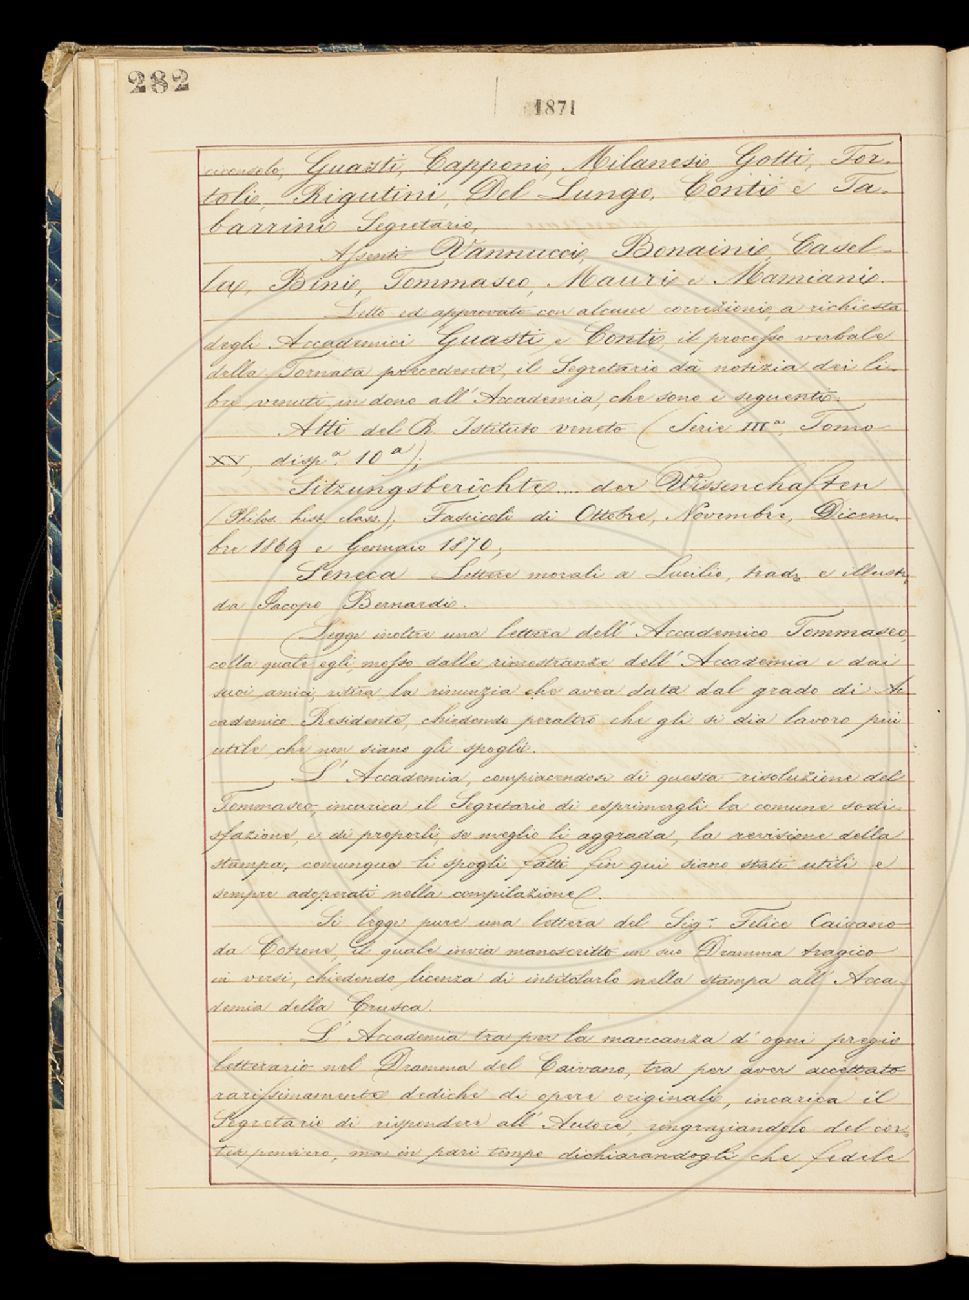 282
1871
Guasti, Capponi, Milanesi Gotti, Tor-
toli, Rigutini, Del-Lungo, Conti e Ta-
barrini Segretario,
Assenti Vannucci, Bonaini, Casel-
la, Bini, Tommaseo, Mauri e Mamiani.
Letto ed approvato con alcune correzioni, a richiesta
degli Accademici Guasti, e Conti il processo verbale
della Tornata precedente, il Segretario dà notizia dei li-
bri venuti in dono all'Accademia, che sono i seguenti.
Atti del R. Istituto veneto (Serie IIIª, Tomo
XV, dispª. 10ª);
Sitzungsberichte.... der Wissenchaften
(Philos. hist. class.), Fascicoli di Ottobre, Novembre, Dicem-
bre 1869 e Gennaio 1870;
Seneca Lettere morali a Lucilio, trad. e illustr.
da Jacopo Bernardi.
Legge inoltre una lettera dell'Accademico Tommaseo,
colla quale egli, mosso dalle rimostranze dell'Accademia e dai
suoi amici, ritira la rinunzia che avea data dal grado di Ac
cademico Residente, chiedendo peraltro che gli si dia lavoro più
utile, che non siano gli spogli.
L'Accademia, compiacendosi di questa risoluzione del
Tommaseo, incarica il Segretario di esprimergli la comune sodi-
sfazione, e di proporli se meglio li aggrada, la revisione della
stampa, comunque li spogli fatti fin qui siano stati utili e
sempre adoperati nella compilazione.
Si legge pure una lettera del Sig.r Felice Caivano
da Cotrone, il quale invia manoscritto un suo Dramma tragico
in versi, chiedendo licenza di intitolarlo nella stampa all'Acca-
demia della Crusca.
L'Accademia tra per la mancanza d'ogni pregio
letterario nel Dramma del Caivano, tra per aver accettato
rarissimamente dediche di opere originali, incarica il
Segretario di rispondere all'Autore, ringraziandolo del cor-
tes pensiero, ma in pari tempo dichiarandogli che fedele